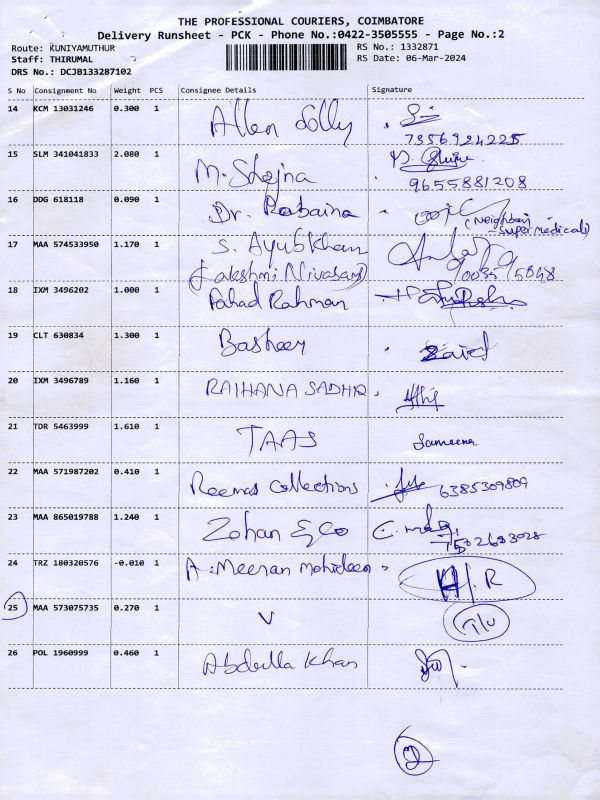 THE PROFESSIONAL COURIERS, COIMBATORE
Delivery Runsheet - PCK - Phone No.:0422-3505555 - Page No.:2
Route: KUNIYAMUTHUR
Staff: THIRUMAL
DRS No.: DCJB133287102
RS No.: 1332871
RS Date: 06-Mar-2024
S No Consignment No Weight PCS Consignee Details Signature
14 KCM 13031246 0.300 1 Allen Solly
7356924225
15 SLM 341041833 2.080 1 M. Shejna
9655881208
16 DDG 618118 0.090 1 Dr. Rabaina
(Neighbour
-super medicals)
17 MAA 574533950 1.170 1 S. Ayubkhan
(Lakshmi Nivasam)
18 IXM 3496202 1.000 1 Fahad Rahman
19 CLT 630834 1.300 1 Basheer Zaid
20 IXM 3496789 1.160 1 RAIHANA SADHIQ
21 TDR 5463999 1.610 1 TAAS Sameena
22 MAA 571987202 0.410 1 Reemas Collections 6385309809
23 MAA 865019788 1.240 1 Zohan & Co
7502683028
24 TRZ 180320576 -0.010 1 A. Meeran Mohideen H/R
25 MAA 573075735 0.270 1
26 POL 1960999 0.460 1 Abdulla Khan